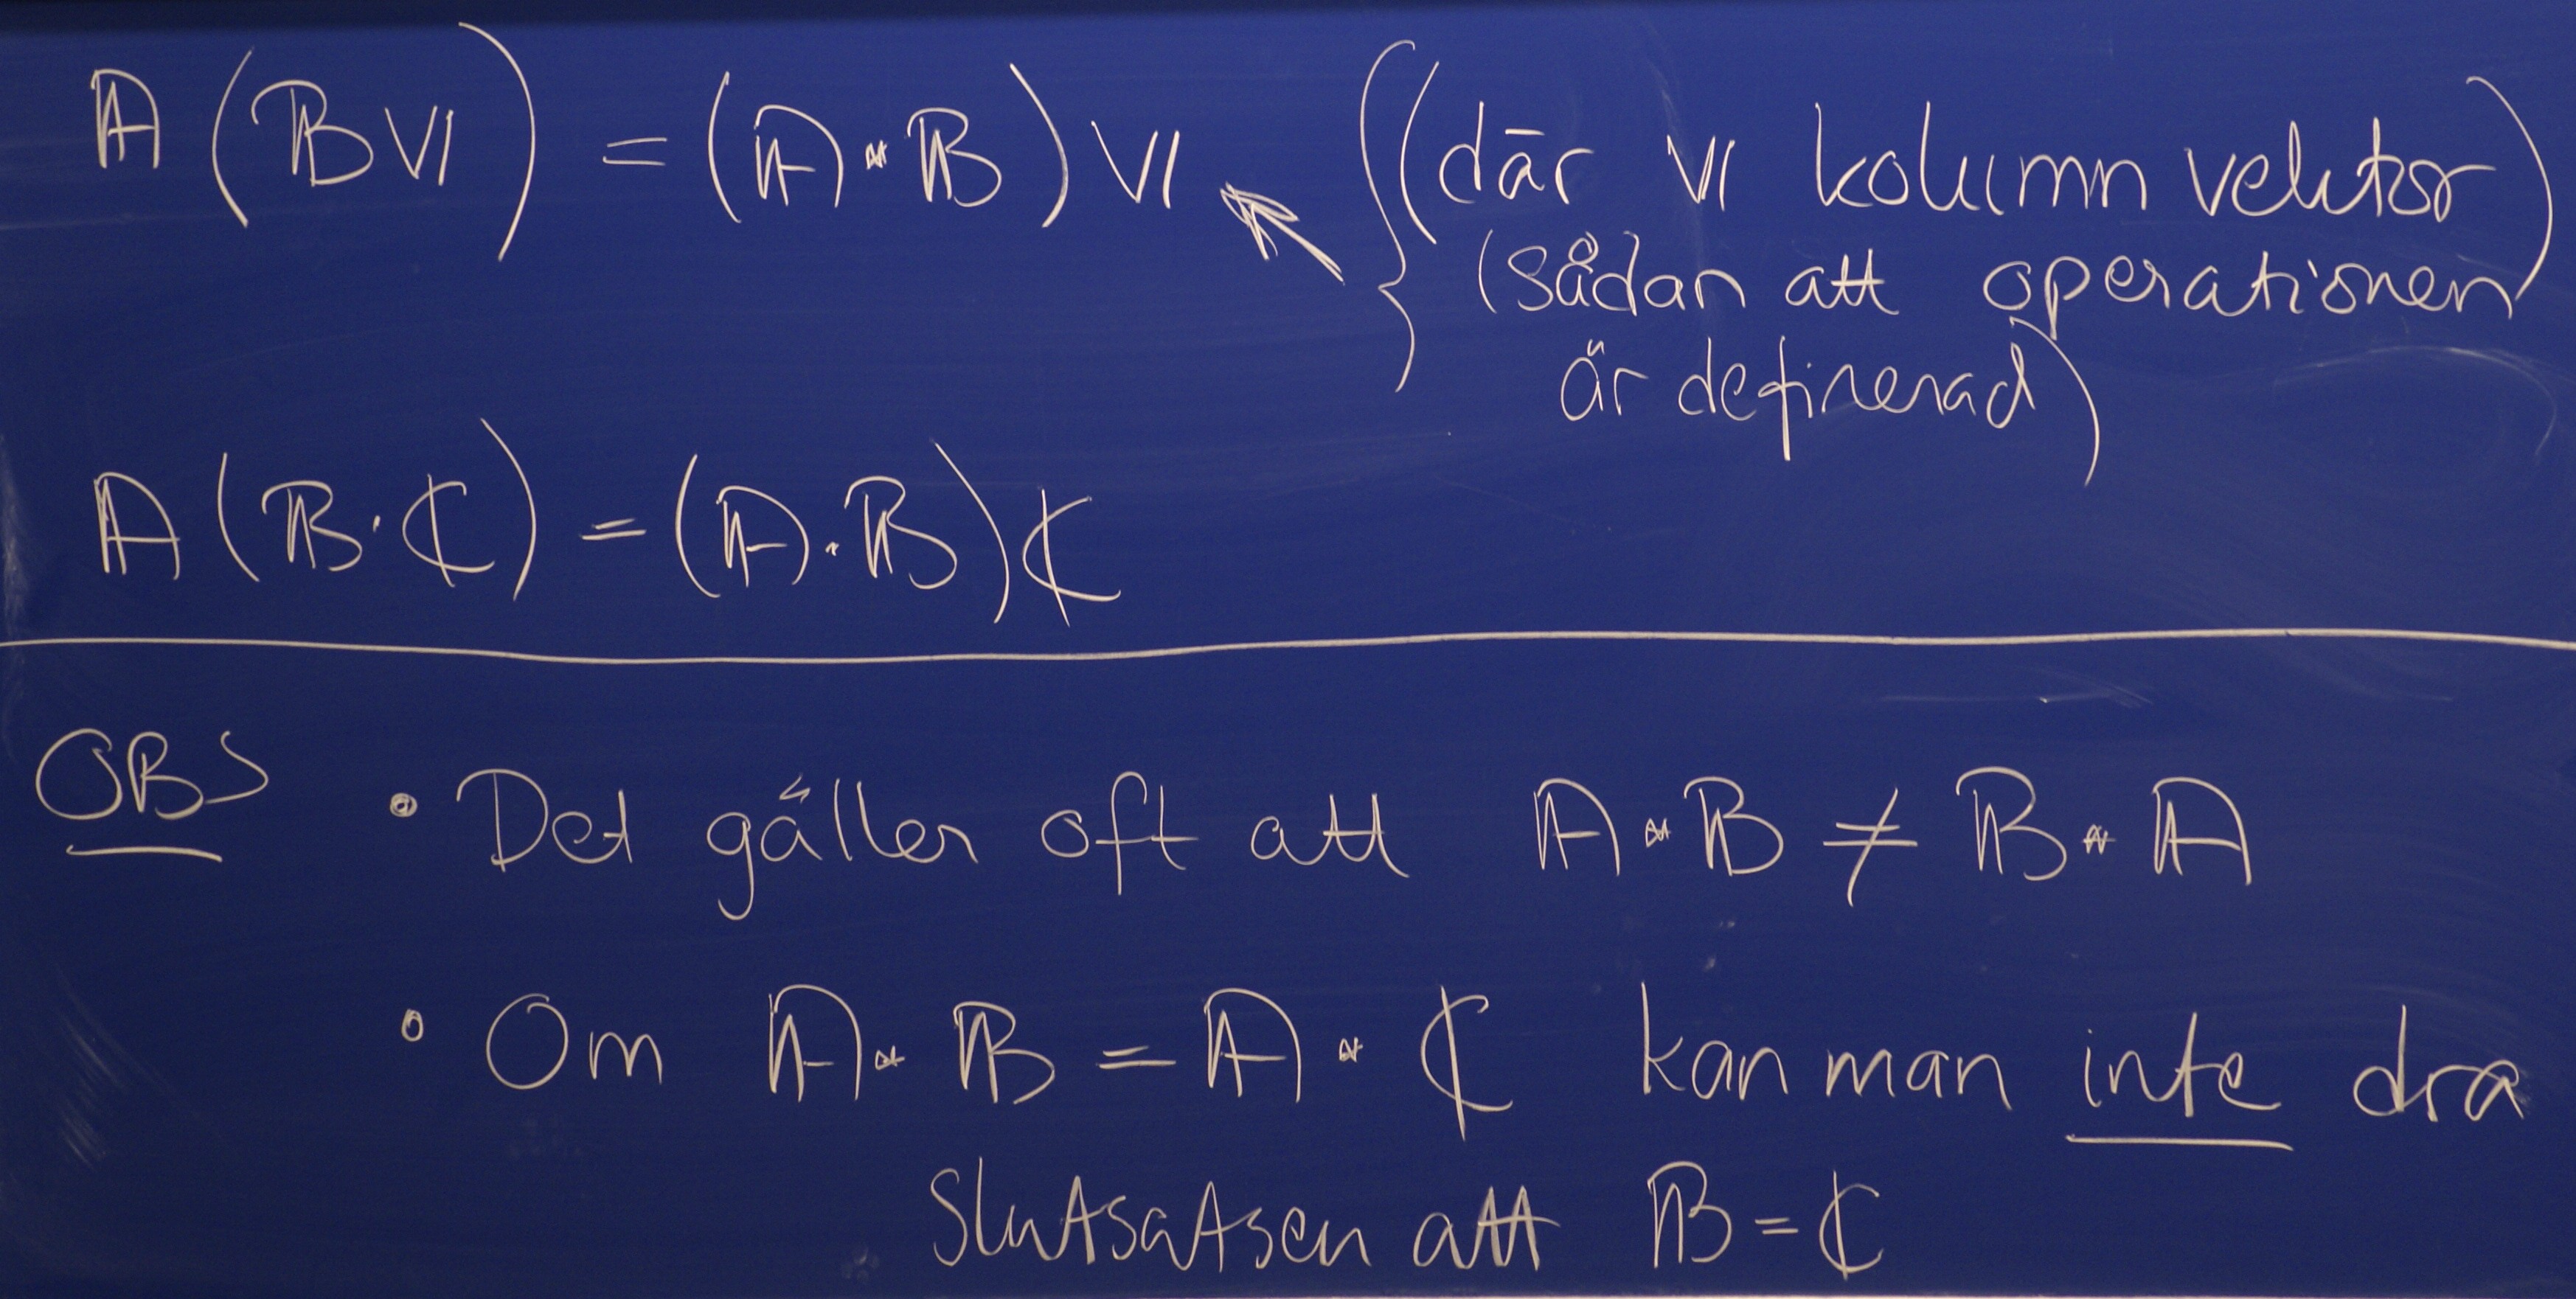 𝔸(𝔹𝕧) = (𝔸·𝔹)𝕧 (där 𝕧 kolumnvektor)
(sådan att operationen
är definerad)
𝔸(𝔹·ℂ) = (𝔸·𝔹)ℂ
OBS • Det gäller oft att 𝔸·𝔹 ≠ 𝔹·𝔸
• Om 𝔸·𝔹 = 𝔸·ℂ kan man inte dra
slutsatsen att 𝔹=ℂ